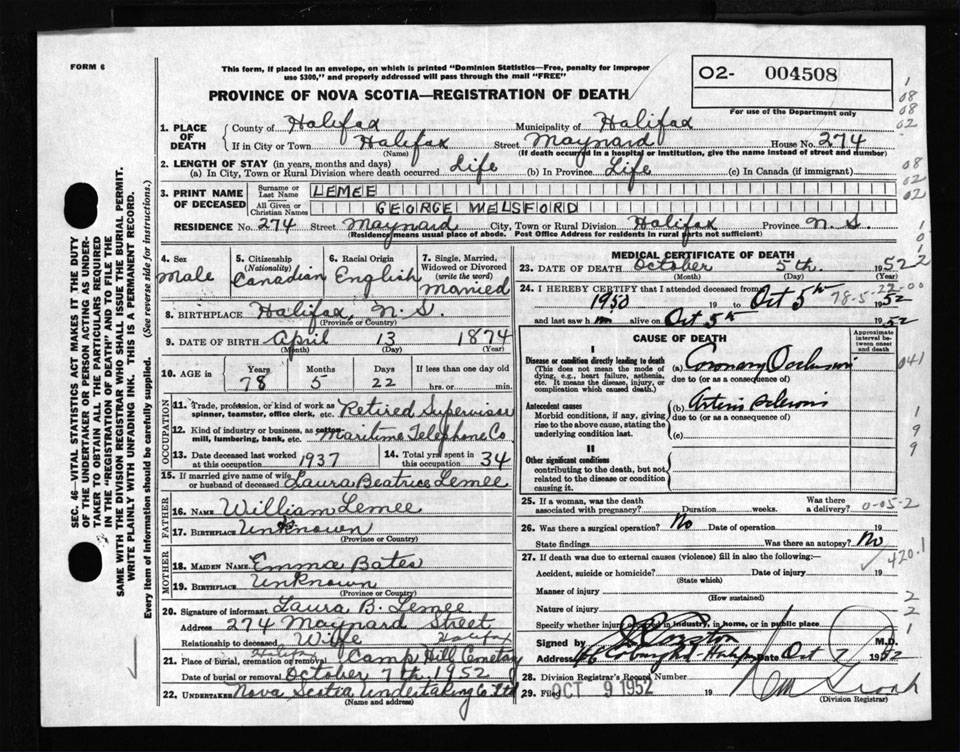 FORM 6
This form, if placed in an envelope, on which is printed "Dominion Statistics—Free, penalty for improper
use $300," and properly addressed will pass through the mail "FREE"
O2- 004508
PROVINCE OF NOVA SCOTIA—REGISTRATION OF DEATH
For use of the Department only
1. PLACE OF DEATH
County of Halifax Municipality of Halifax
If in City or Town Halifax Street Maynard House No. 274
(Name) (If death occurred in a hospital or institution, give the name instead of street and number)
2. LENGTH OF STAY (in years, months and days)
(a) In City, Town or Rural Division where death occurred Life (b) In Province Life (c) In Canada (if immigrant)
3. PRINT NAME OF DECEASED
Surname or Last Name LEMEE
All Given or Christian Names GEORGE WELSFORD
RESIDENCE No. 274 Street Maynard City, Town or Rural Division Halifax Province N.S.
(Residence means usual place of abode. Post Office Address for residents in rural parts not sufficient)
4. Sex Male
5. Citizenship (Nationality) Canadian
6. Racial Origin English
7. Single, Married, Widowed or Divorced (write the word) Married
8. BIRTHPLACE Halifax, N.S.
(Province or Country)
9. DATE OF BIRTH April 13 1874
(Month) (Day) (Year)
10. AGE in
Years Months Days If less than one day old
78 5 22 hrs. or min.
OCCUPATION
11. Trade, profession, or kind of work as spinner, teamster, office clerk, etc. Retired Supervisor
12. Kind of industry or business, as cotton mill, lumbering, bank, etc. Maritime Telephone Co
13. Date deceased last worked at this occupation 1937
14. Total yrs. spent in this occupation 34
15. If married give name of wife or husband of deceased Laura Beatrice Lemee
FATHER
16. NAME William Lemee
17. BIRTHPLACE Unknown
(Province or Country)
MOTHER
18. MAIDEN NAME Emma Bates
19. BIRTHPLACE Unknown
(Province or Country)
20. Signature of informant Laura B. Lemee
Address 274 Maynard Street
Relationship to deceased Wife Halifax
21. Place of burial, cremation or removal Halifax Camp Hill Cemetary
Date of burial or removal October 7th, 1952
22. UNDERTAKER Nova Scotia Undertaking Co Ltd
(Name and address)
MEDICAL CERTIFICATE OF DEATH
23. DATE OF DEATH October 5th. 1952
(Month) (Day) (Year)
24. I HEREBY CERTIFY that I attended deceased from
1950 19 to Oct 5th 1952
78-5-22-00
and last saw him alive on Oct 5th 1952
CAUSE OF DEATH
Approximate interval between onset and death
I
Disease or condition directly leading to death
(This does not mean the mode of dying, e.g., heart failure, asthenia, etc. It means the disease, injury, or complication which caused death.)
(a) Coronary Occlusion
due to (or as a consequence of)
Antecedent causes
Morbid conditions, if any, giving rise to the above cause, stating the underlying condition last.
(b) Arterio Sclerosis
due to (or as a consequence of)
(c)
II
Other significant conditions
contributing to the death, but not related to the disease or condition causing it.
25. If a woman, was the death associated with pregnancy? Duration weeks. Was there a delivery? 0-05-2
26. Was there surgical operation? No Date of operation 19
State findings Was there an autopsy? No
27. If death was due to external causes (violence) fill in also the following:—
420.1
Accident, suicide or homicide? Date of injury 19
(State which)
Manner of injury
(How sustained)
Nature of injury
Specify whether injury occurred in industry, in home, or in public place
Signed by M.D.
Address Date Oct 7 1952
28. Division Registrar's Record Number
29. Filed OCT 9 1952 19
(Division Registrar)
SEC. 46—VITAL STATISTICS ACT MAKES IT THE DUTY
OF THE UNDERTAKER OR PERSON ACTING AS UNDER-
TAKER TO OBTAIN ALL THE PARTICULARS REQUIRED
IN THE "REGISTRATION OF DEATH" AND TO FILE THE
SAME WITH THE DIVISION REGISTRAR WHO SHALL ISSUE THE BURIAL PERMIT.
WRITE PLAINLY WITH UNFADING INK. THIS IS A PERMANENT RECORD.
Every item of information should be carefully supplied. (See reverse side for instructions.)
1
08
08
02
08
02
02
1
0
1
2
041
1
9
9
2
2
1